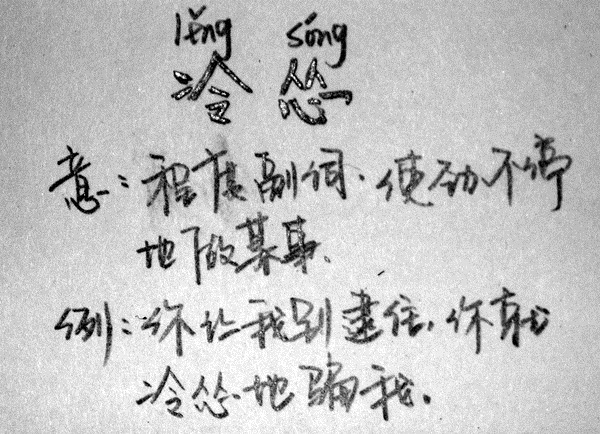 lěng sóng
冷 怂
意:程度副词.使劲不停
地做某事.
例:你让我别逮住,你就
冷怂地骗我.